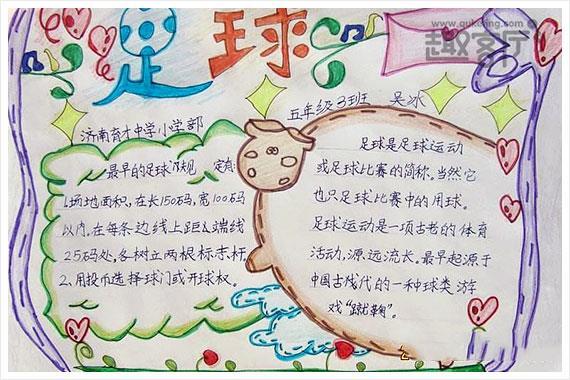 www.qukeling.com
趣客厅
足球
济南育才中学小学部
五年级3班 吴冰
最早的足球
1.场地面积,在长150码,宽100码
以内,在每条边线上距端线
25码处,各树立两根标志杆
2.用投币选择球门或开球权。
足球是足球运动
或足球比赛的简称。当然它
也只足球比赛中的用球。
足球运动是一项古老的体育
活动,源远流长。最早起源于
中国古代的一种球类游
戏“蹴鞠”。